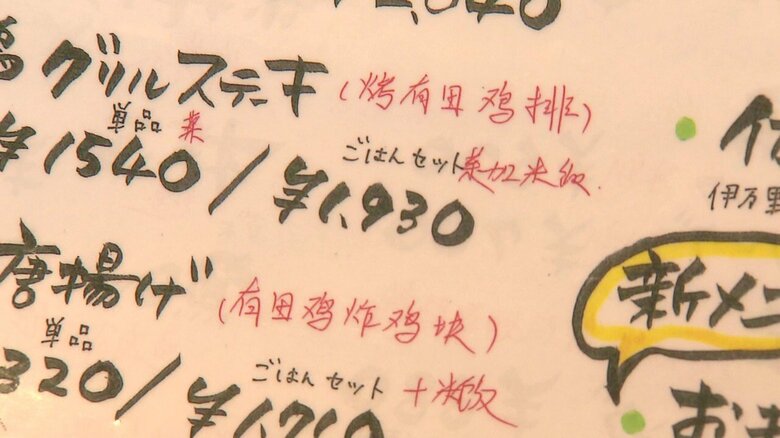 グリルステーキ (烤有田鸡排)
単品 菜 ごはんセット 菜加米饭
¥1540 / ¥1,930
唐揚げ (有田鸡炸鸡块)
単品 ごはんセット +米饭
320 / ¥1,710
伊万里
新メニ
お